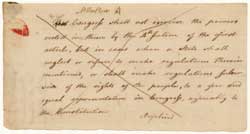 Motion A
That Congress shall not exercise the powers
vested in them by the 4th section of the first
article, but in cases when a State shall
neglect or refuse to make regulations therein
mentioned, or shall make regulations subver
sive of the rights of the people, to a free and
equal representation in Congress, agreeably to
the Constitution.